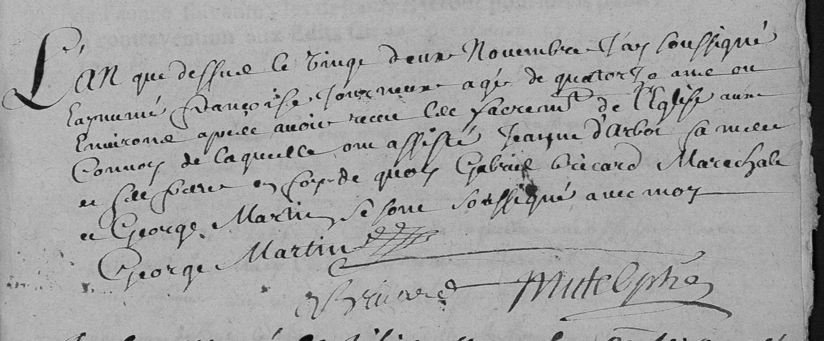 L'An que dessus le Vingt deux Novembre J'ay soussigné
Inhumé Françoise Journeux agé de quatorze ans ou
Environs apres avoir receu les sacremts de l'Eglise au
Convoy de laquelle ont assisté Jeanne d'Arbot sa mere
et ses freres en foy de quoy Gabriel Bricard Marechale
et George Martin se sont soussigné avec moy
George Martin
Bricard